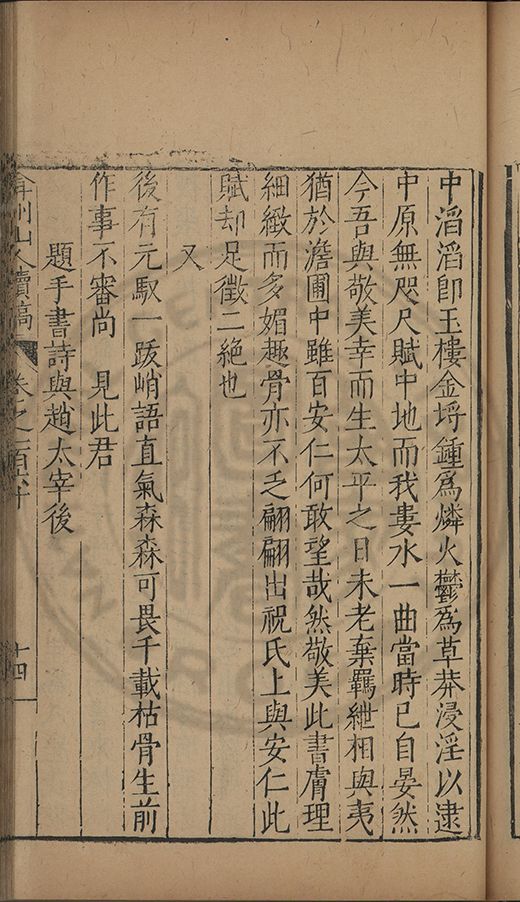 中滔滔卽玉樓金埒鍾爲燐火鬱爲草莽浸淫以逮
中原無咫尺賦中地而我婁水一曲當時已自晏然
今吾與敬美幸而生太平之日未老棄羈紲相與夷
猶於澹圃中雖百安仁何敢望哉然敬美此書膚理
細緻而多媚趣骨亦不乏翩翩出祝氏上與安仁此
賦却足徵二絶也
又
後有元馭一跋峭語直氣森森可畏千載枯骨生前
作事不審尚 見此君
題手書詩與趙太宰後
弇州山人續稿 卷之一百六十 十四